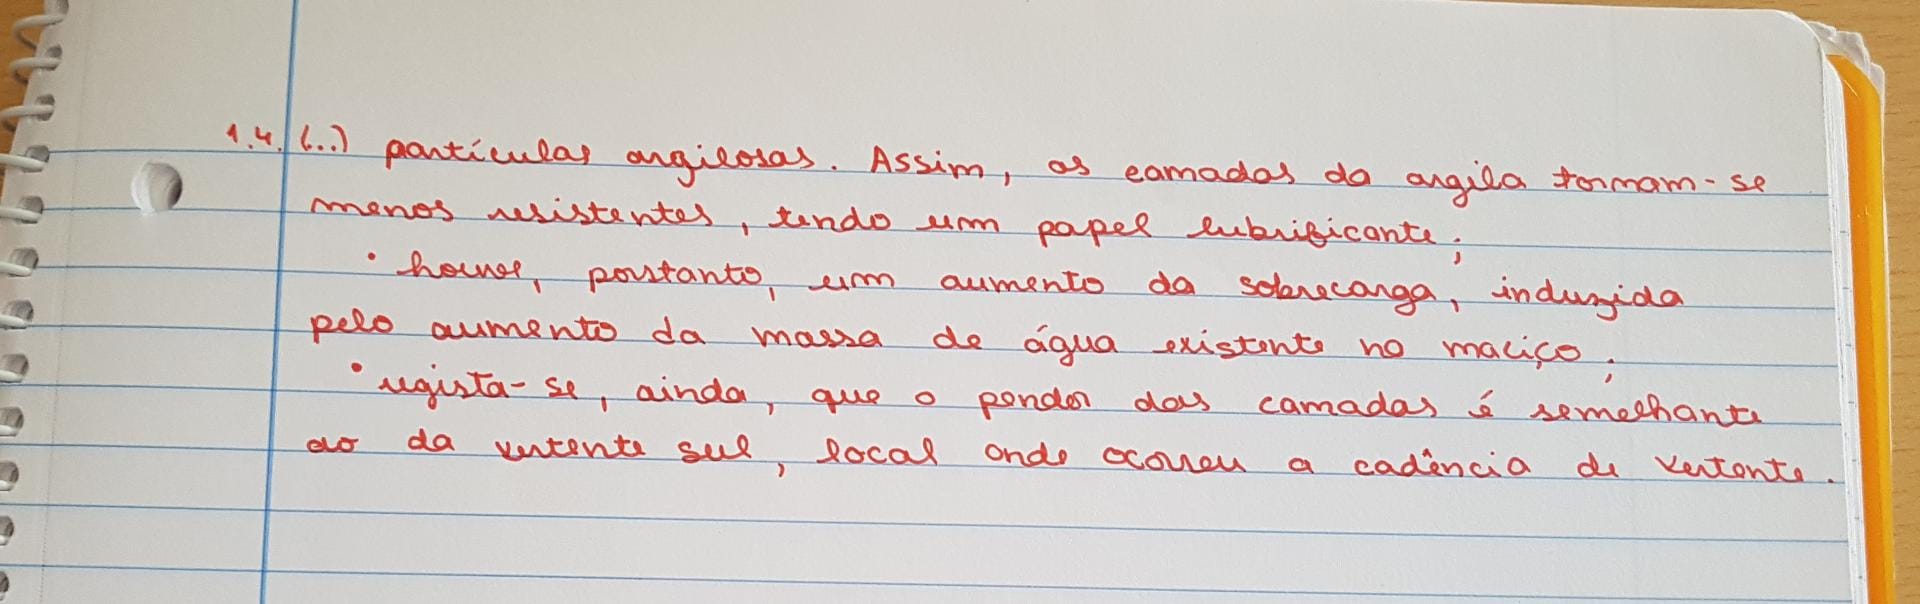 1.4. (...) partículas argilosas. Assim, as camadas da argila tornam-se
menos resistentes, tendo um papel lubrificante;
• houve, portanto, um aumento da sobrecarga, induzida
pelo aumento da massa de água existente no maciço;
• regista-se, ainda, que o pendor das camadas é semelhante
ao da vertente sul, local onde ocorreu a cadência de vertente.